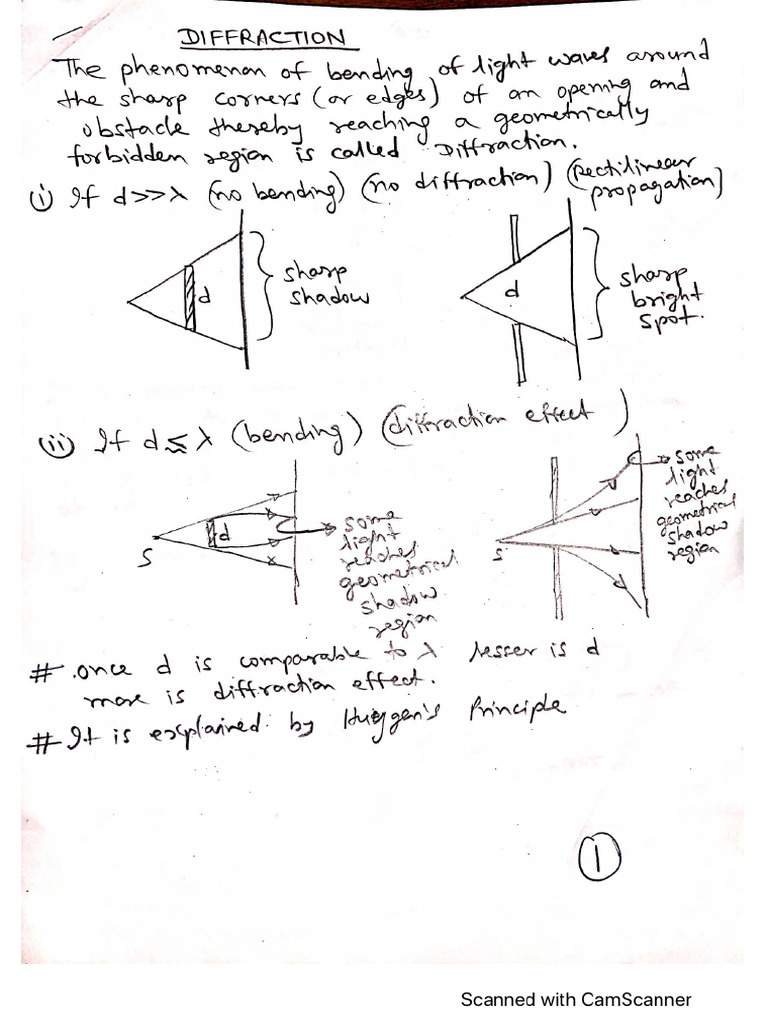 DIFFRACTION
The phenomenon of bending of light waves around
the sharp corners (or edges) of an opening and
obstacle thereby reaching a geometrically
forbidden region is called Diffraction.
(i) If d>>λ (no bending) (no diffraction) (Rectilinear
propagation)
d
sharp
shadow
d
sharp
bright
spot.
(ii) If d≲λ (bending) (diffraction effect)
S
d
some
light
reaches
geometrical
shadow
region
S
some
light
reaches
geometrical
shadow
region
# once d is comparable to λ lesser is d
more is diffraction effect.
# It is explained by Huygen's Principle
1
Scanned with CamScanner